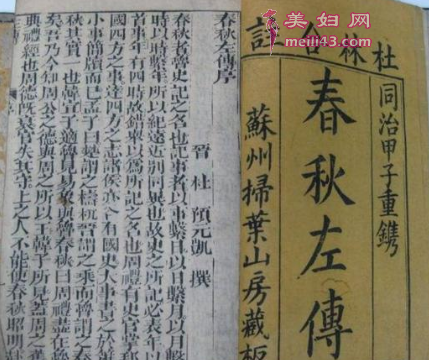 美妇网
meishij43.com
杜林合註
同治甲子重鐫
春秋左傳
蘇州掃葉山房藏板
春秋左傳序
晉 杜 預元凱 撰
春秋者魯史記之名也記事者以事繫日以日繫月以月繫
時以時繫年所以紀遠近別同異也故史之所記必表年以
首事年有四時故錯舉以為所記之名也周禮有史官掌邦
國四方之事達四方之志諸侯亦各有國史大事書之於策
小事簡牘而已孟子曰楚謂之檮杌晉謂之乘而魯謂之春
秋其實一也韓宣子適魯見易象與魯春秋曰周禮盡在魯
矣吾乃今知周公之德與周之所以王韓子所見蓋周之舊
典禮經也周德既衰官失其守上之人不能使春秋昭明